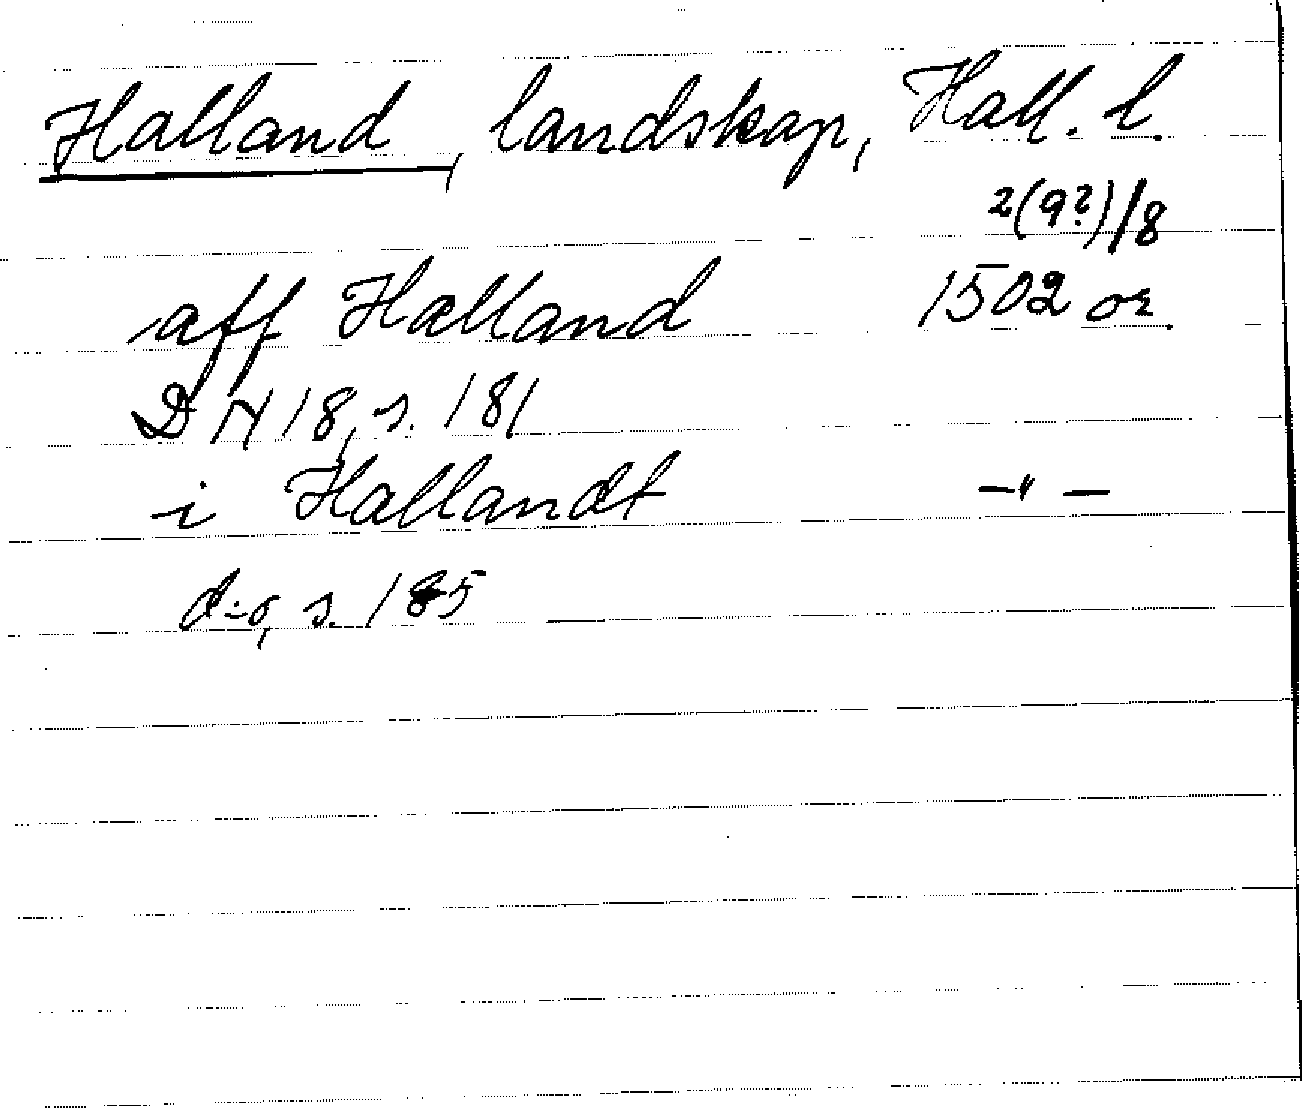 Halland, landskap, Hall. l.
2(9?)/8
aff Halland 1502 or.
DN 18, s. 181
i Hallandt —"—
d:o, s. 185